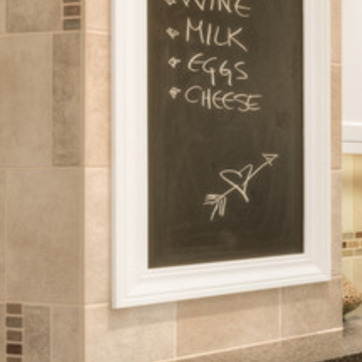 • WINE
• MILK
• EGGS
• CHEESE